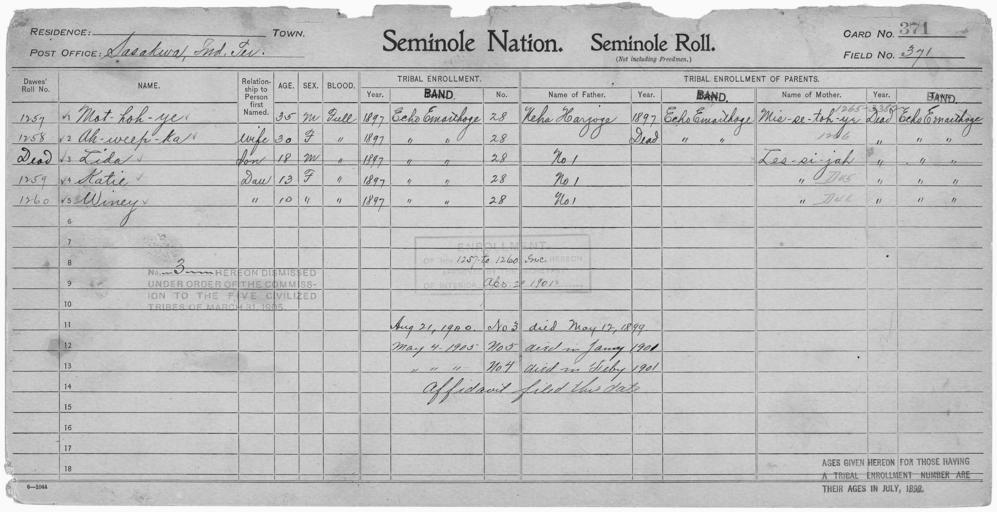 RESIDENCE: TOWN.
POST OFFICE: Sasakwa, Ind. Ter.
Seminole Nation. Seminole Roll.
(Not including Freedmen.)
CARD NO. 371
FIELD NO. 371
Dawes' Roll No. NAME. Relationship to Person first Named. AGE. SEX. BLOOD. TRIBAL ENROLLMENT. TRIBAL ENROLLMENT OF PARENTS.
Year. BAND. No. Name of Father. Year. BAND. Name of Mother. Year. BAND.
1257 1 Mot-hoh-ye 35 M Full 1897 Echo Emarthoge 28 Neha Harjoge 1897 Echo Emarthoge Mis-se-toh-ye Dead Echo Emarthoge
1258 2 Ah-weep-ka Wife 30 F " 1897 " " 28 Dead " " " " "
Dead 3 Lida Son 18 M " 1897 " " 28 No 1 Les-si-jah " " "
1259 4 Katie Dau 13 F " 1897 " " 28 No 1 " " " "
1260 5 Winey " 10 " " 1897 " " 28 No 1 " " " "
6
7
ENROLLMENT.
8 OF 1257 to 1260 Inc. HEREON
No. 3 HEREON DISMISSED
9 UNDER ORDER OF THE COMMISS- OF INTERIOR 2 1901
ION TO THE FIVE CIVILIZED
10 TRIBES OF MARCH 31, 1905.
11 Aug 21, 1900. No 3 died May 12, 1899.
12 May 4 - 1905 No 5 died in Jany 1901
13 " " " No 4 died in Feby 1901
14 Affidavit filed this date
15
16
17
18
AGES GIVEN HEREON FOR THOSE HAVING
A TRIBAL ENROLLMENT NUMBER ARE
THEIR AGES IN JULY, 1898.
6—1044